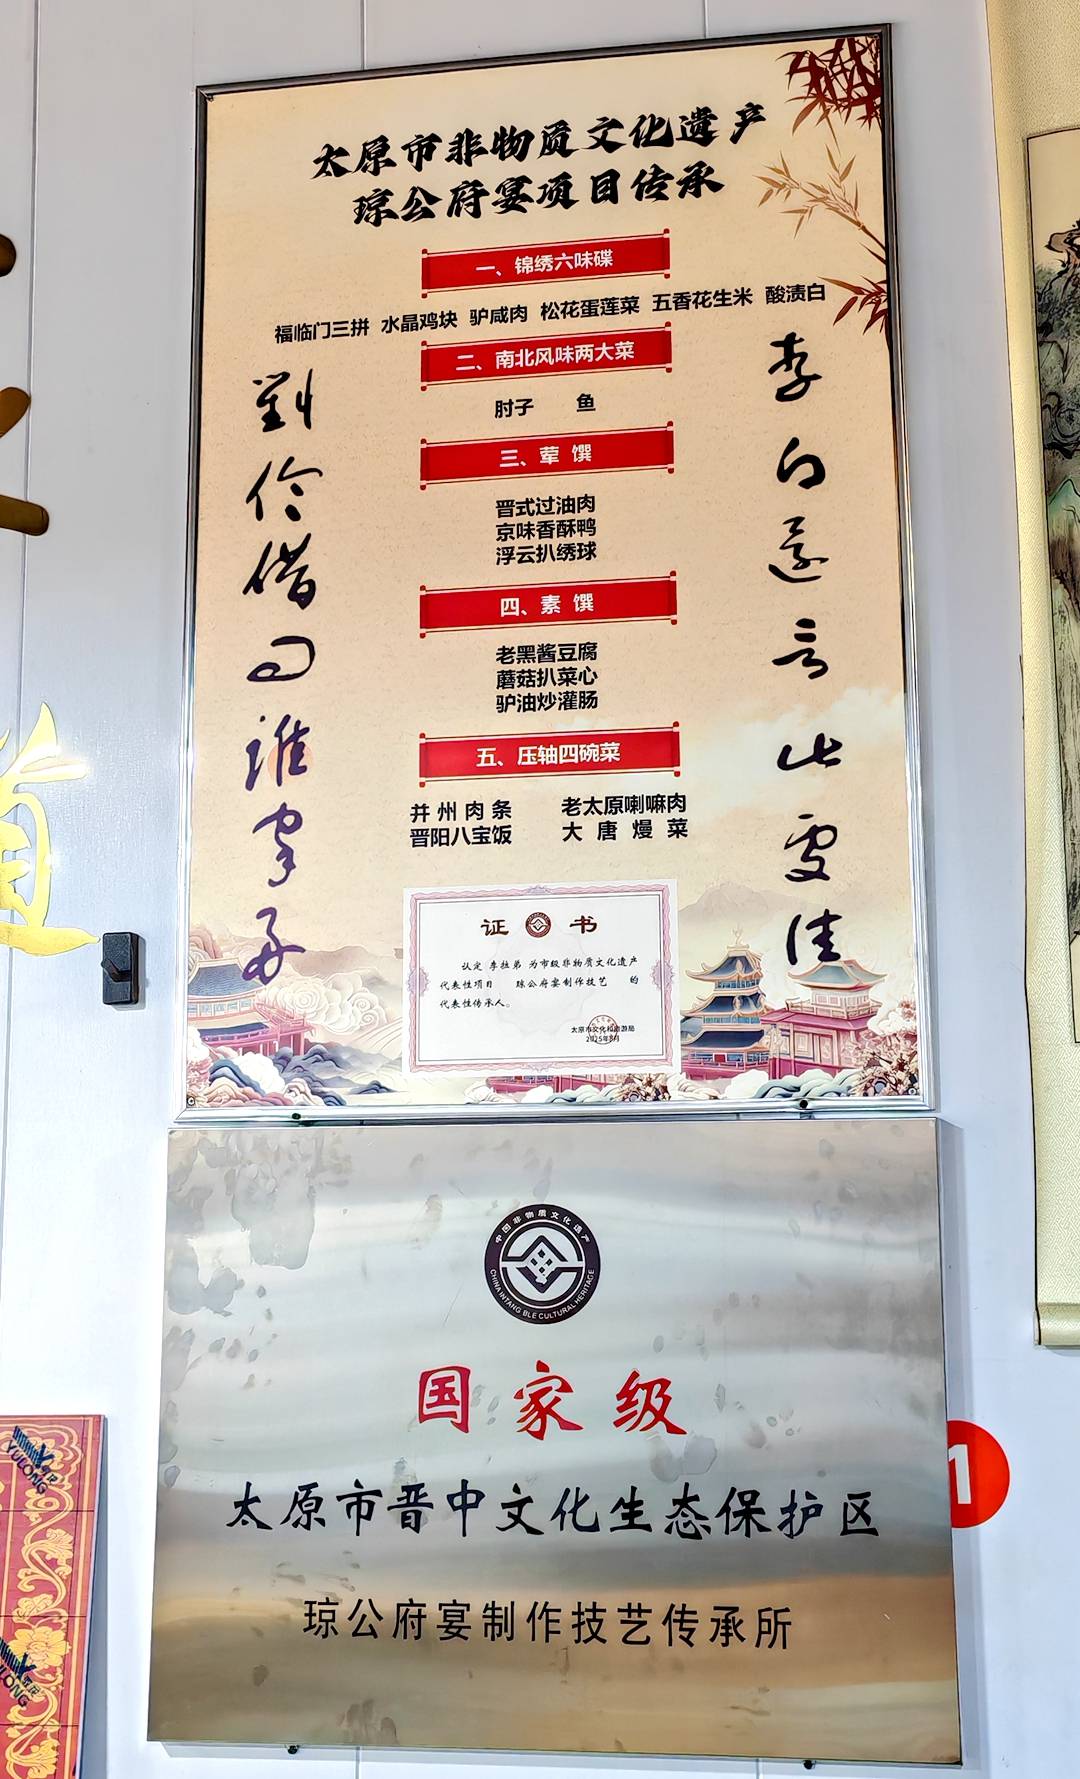 太原市非物质文化遗产
琼公府宴项目传承
一、锦绣六味碟
福临门三拼 水晶鸡块 驴咸肉 松花蛋莲菜 五香花生米 酸渍白
二、南北风味两大菜
肘子 鱼
三、荤 馔
晋式过油肉
京味香酥鸭
浮云扒绣球
四、素 馔
老黑酱豆腐
蘑菇扒菜心
驴油炒灌肠
五、压轴四碗菜
并州肉条 老太原喇嘛肉
晋阳八宝饭 大唐熳菜
李白还言此处佳
刘伶借问谁家好
证书
认定 李拉弟 为市级非物质文化遗产
代表性项目 琼公府宴制作技艺 的
代表性传承人。
太原市文化和旅游局
2025年8月
中国非物质文化遗产
CHINA INTANG BLE CULTURAL HERITAGE
国家级
太原市晋中文化生态保护区
琼公府宴制作技艺传承所
1
YULONG